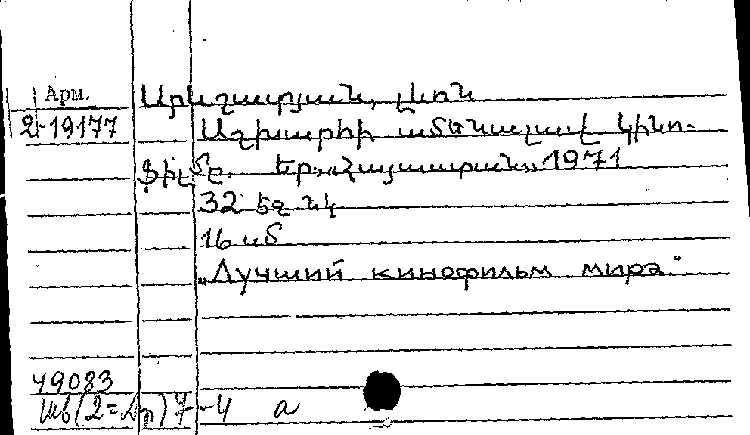 Арм.
2-19177
Արևշատյան, Լևոն
Աշխարհի ամենալավ կինո-
ֆիլմը. Եր., «Հայաստան», 1971
32 էջ նկ
16 սմ
„Лучший кинофильм мира"
49083
7-4 а